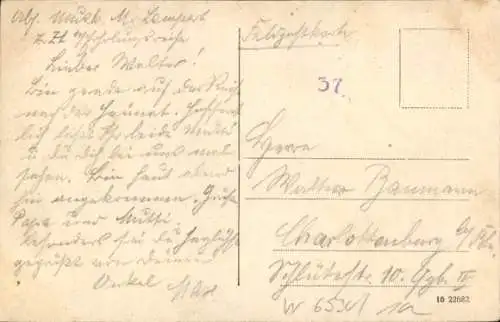 Abs. Musk. M. Lampert
z. Zt. Erholungsreise
Lieber Walter!
Bin gerade auf der Reise
nach der Heimat. Hoffent
lich Ihr beide
u. du dich bei uns mal
sehen. Bin heut abend
hier angekommen. Grüße
Papa und Mutti.
besonders sei du herzlichst
gegrüßt von deinem
Onkel Max
Feldpostkarte
37.
Herrn
Walter Baumann
Charlottenburg
Schlüterstr. 10. Gh. IV
W 6521 1a
10 22682